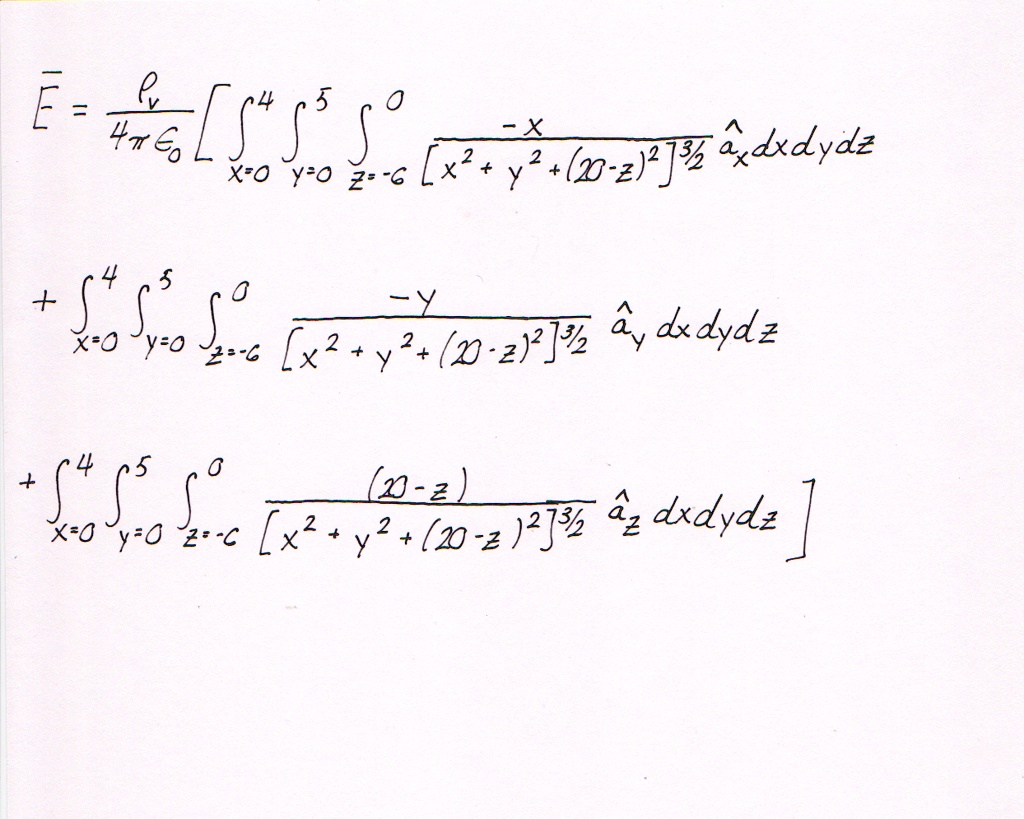 Ē = ρᵥ/(4πϵ₀) [ ∫_{x=0}^{4} ∫_{y=0}^{5} ∫_{z=-6}^{0} -x/[x² + y² + (20-z)²]^{3/2} âₓ dxdydz
+ ∫_{x=0}^{4} ∫_{y=0}^{5} ∫_{z=-6}^{0} -y/[x² + y² + (20-z)²]^{3/2} â_y dxdydz
+ ∫_{x=0}^{4} ∫_{y=0}^{5} ∫_{z=-6}^{0} (20-z)/[x² + y² + (20-z)²]^{3/2} â_z dxdydz ]